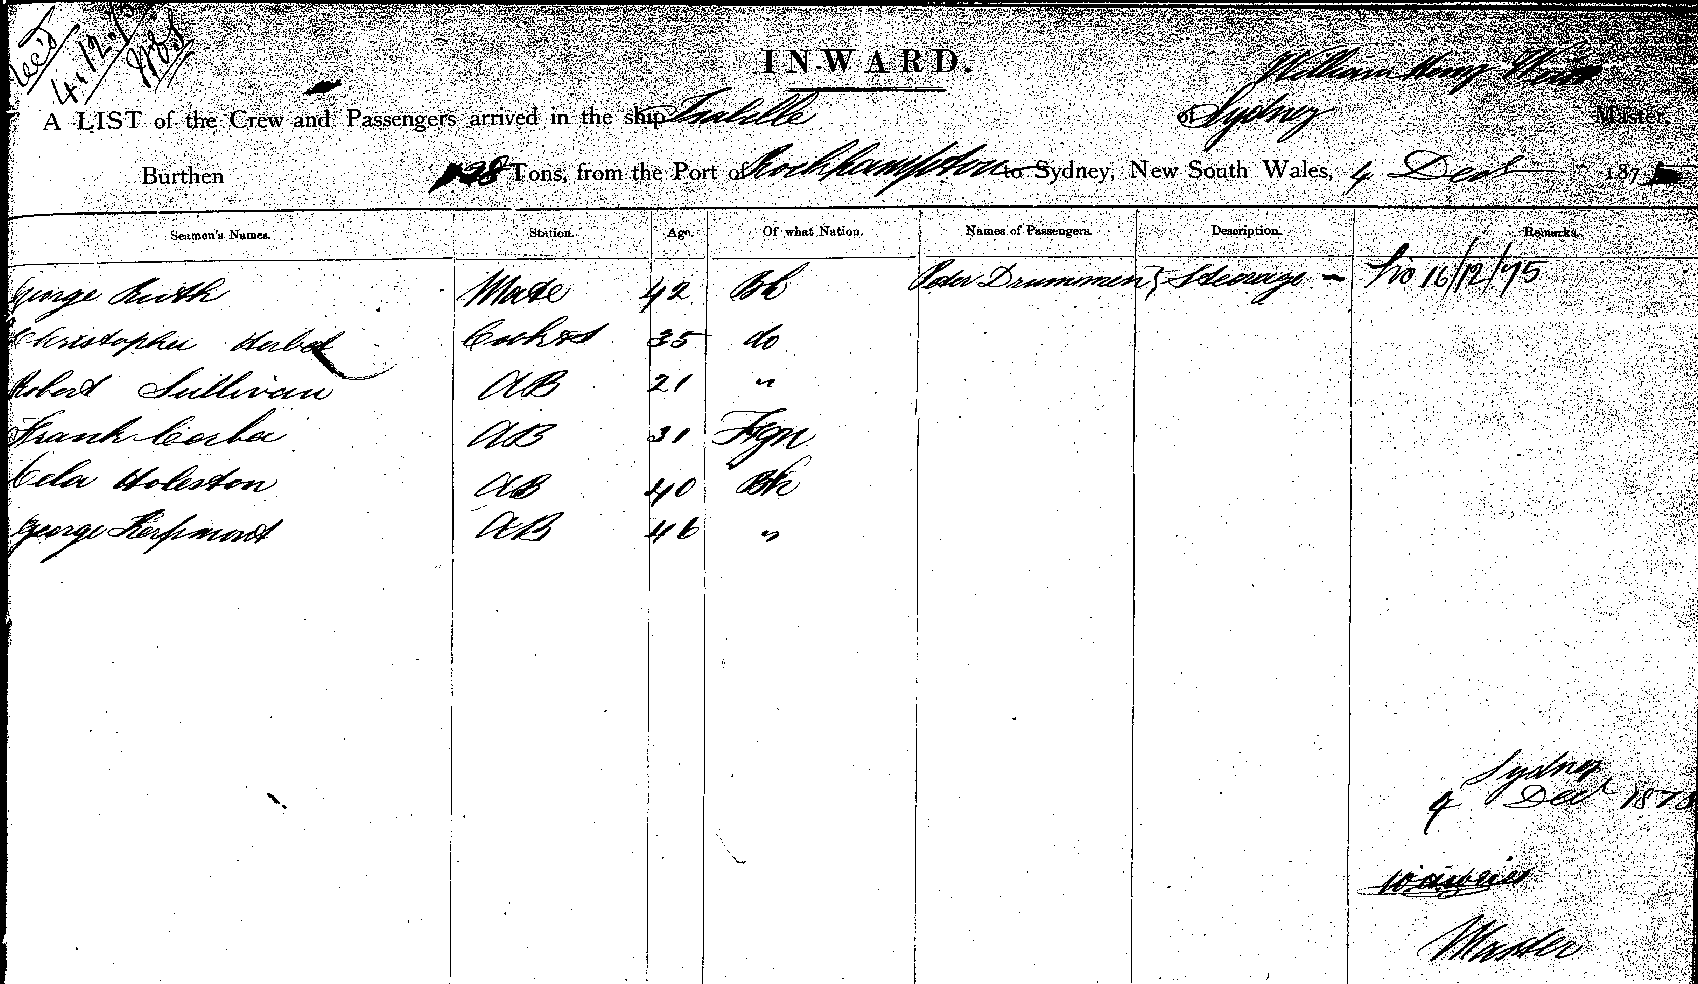 4.12.
INWARD.
William Henry
A LIST of the Crew and Passengers arrived in the ship Isabella of Sydney Master,
Burthen 138 Tons, from the Port of Rockhampton to Sydney, New South Wales, 4 Decr 187
Seamen's Names. Station. Age. Of what Nation. Names of Passengers. Description. Remarks.
George Mate 42 Bh Peter Drummen } Steerage - 16/12/75
Christopher Herbet Cook &c 35 do
Robert Sullivan AB 21 "
Frank Corba AB 31 Fgn
Holeston AB 40 Bh
George AB 46 "
Sydney
4 Decr 1875
Master